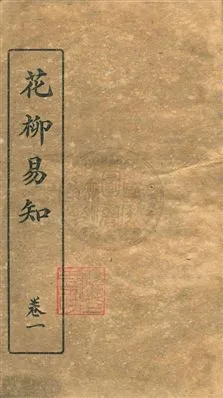 花柳易知
卷一